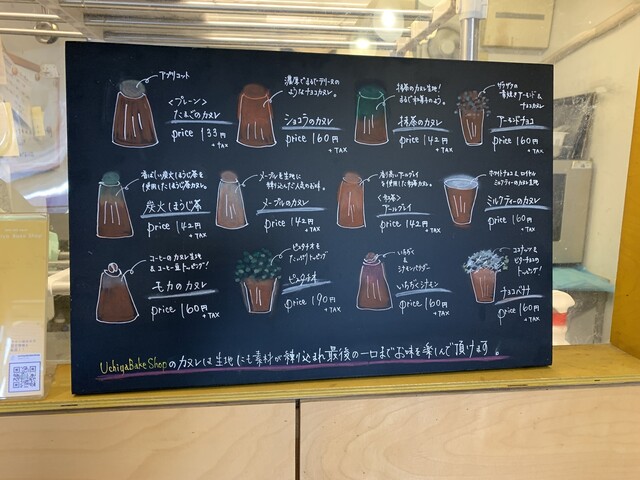 アプリコット
<プレーン>
たまごのカヌレ
price 133円
+TAX
濃厚でまるでテリーヌの
ようなチョコカヌレ。
ショコラのカヌレ
price 160円
+TAX
抹茶のカヌレ生地!
まるで和菓子のよう。
抹茶のカヌレ
price 142円
+TAX
アーモンド&
チョコカヌレ
アーモンドチョコ
price 160円
+TAX
香ばしい炭火ほうじ茶を
使用したほうじ茶カヌレ。
炭火ほうじ茶
price 142円
+TAX
メープルを生地に
練り込んだ人気のお味。
メープルのカヌレ
price 142円
+TAX
香り高いアールグレイ
を使用した紅茶カヌレ。
<紅茶>
アールグレイ
price 142円
+TAX
ホワイトチョコ&ロイヤル
ミルクティーのカヌレ生地
ミルクティーのカヌレ
price 160円
+TAX
コーヒーのカヌレ生地
&コーヒー豆トッピング!
モカのカヌレ
price 160円
+TAX
ピスタチオを
たっぷりトッピング
ピスタチオ
price 190円
+TAX
いちぢく
&
シナモンパウダー
いちぢくシナモン
price 160円
+TAX
ココナッツ&
ピターチョコの
トッピング!
チョコバナナ
price 160円
+TAX
UchiyaBakeShopのカヌレは生地にも素材が練り込まれ最後の一口までお味を楽しんで頂けます。